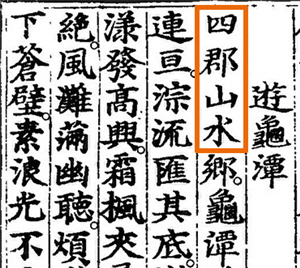 遊龜潭
四郡山水鄉。龜潭
連亘。淙流匯其底。
漾發高興。霜楓夾
絶。風灘滿幽聽。煩
下蒼壁。素浪光不